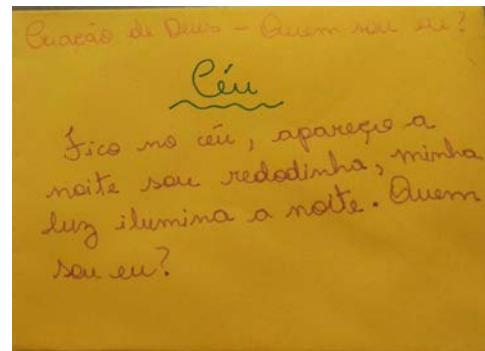 Criação de Deus - Quem sou eu?
Céu
Fico no céu, apareço a
noite sou redodinha, minha
luz ilumina a noite. Quem
sou eu?